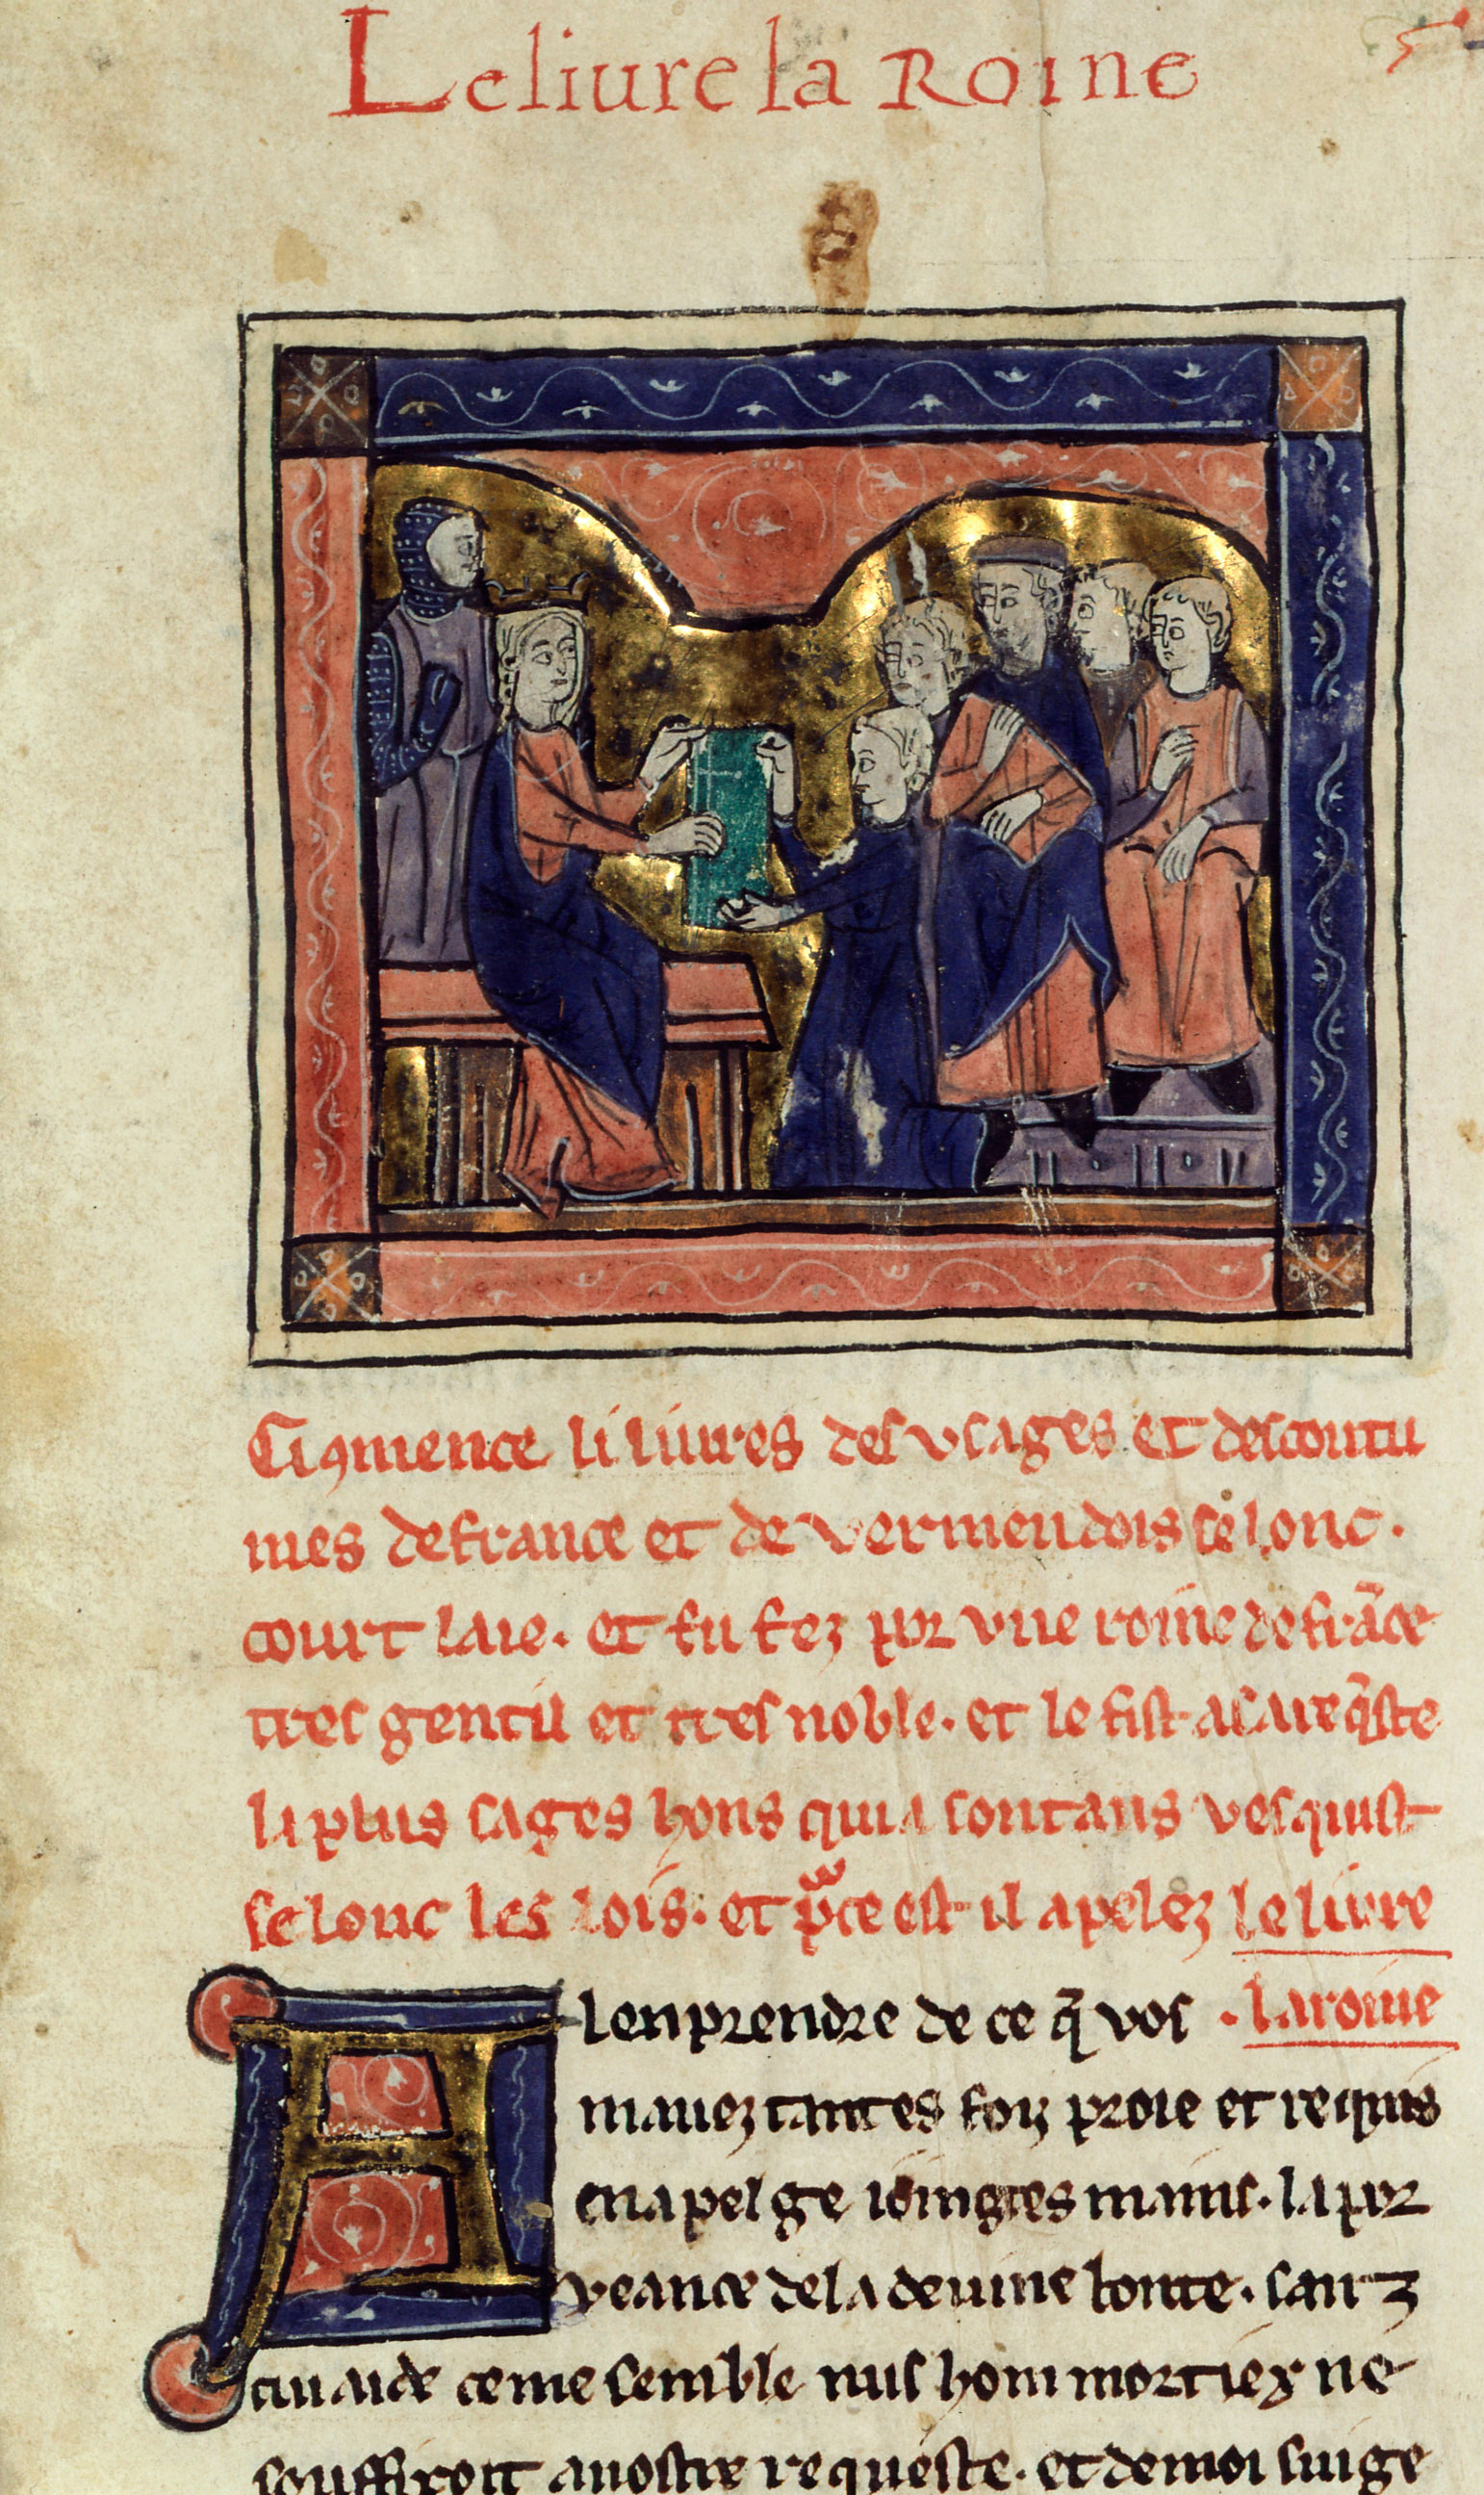 Le liure la Roine
Ci ꝯmence li liures des vsages et des coutu
mes de france et de vermendois selonc ·
court laie · et fu fez por vne roine de frāce
tres gentil et tres noble · et le fist a sa reqͥste
li plus sages hons qui a son tans vesquist
selonc les lois · et pͬ ce est il apelez le liure
Alenprendre de ce q̄ vos · la roine
mauez tantes foiz proie et requis
en apel ge iointes mains · la por
veance de la deuine bonte · sanz
cui aide ce me semble nus hom mortiex ne
souffiroit a uostre requeste · et de moi sui ge